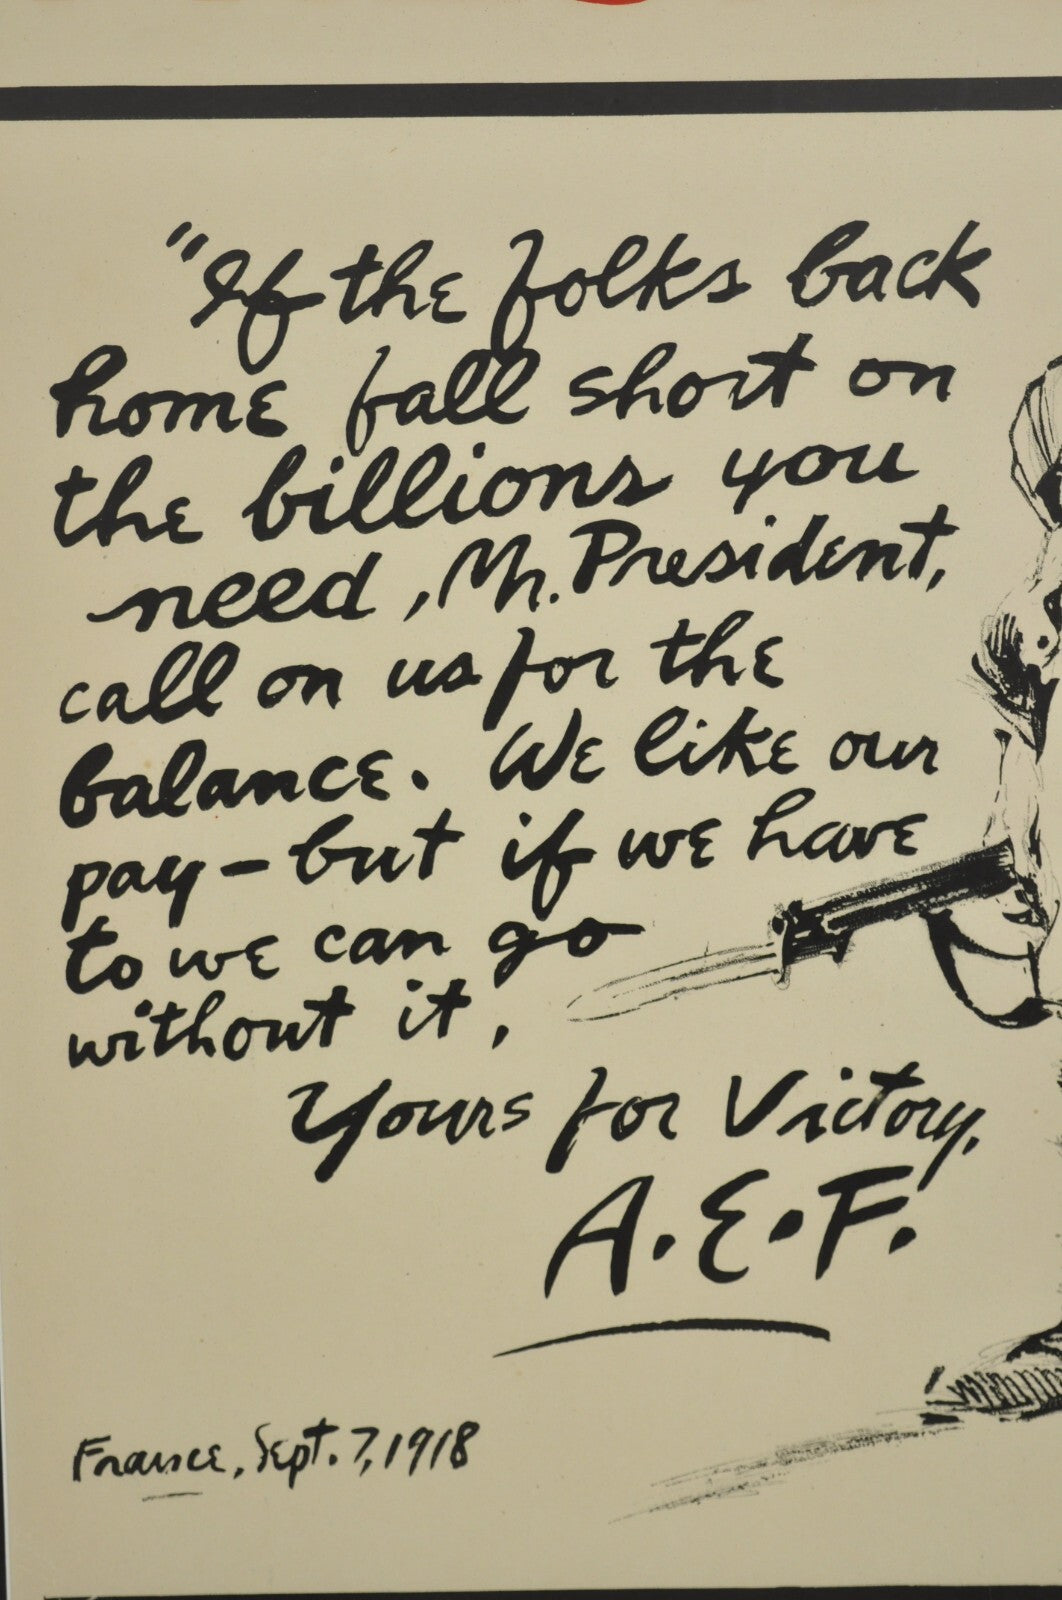 "If the folks back
home fall short on
the billions you
need, Mr. President,
call on us for the
balance. We like our
pay-but if we have
to we can go
without it,
Yours for Victory,
A.E.F.
France, Sept. 7, 1918